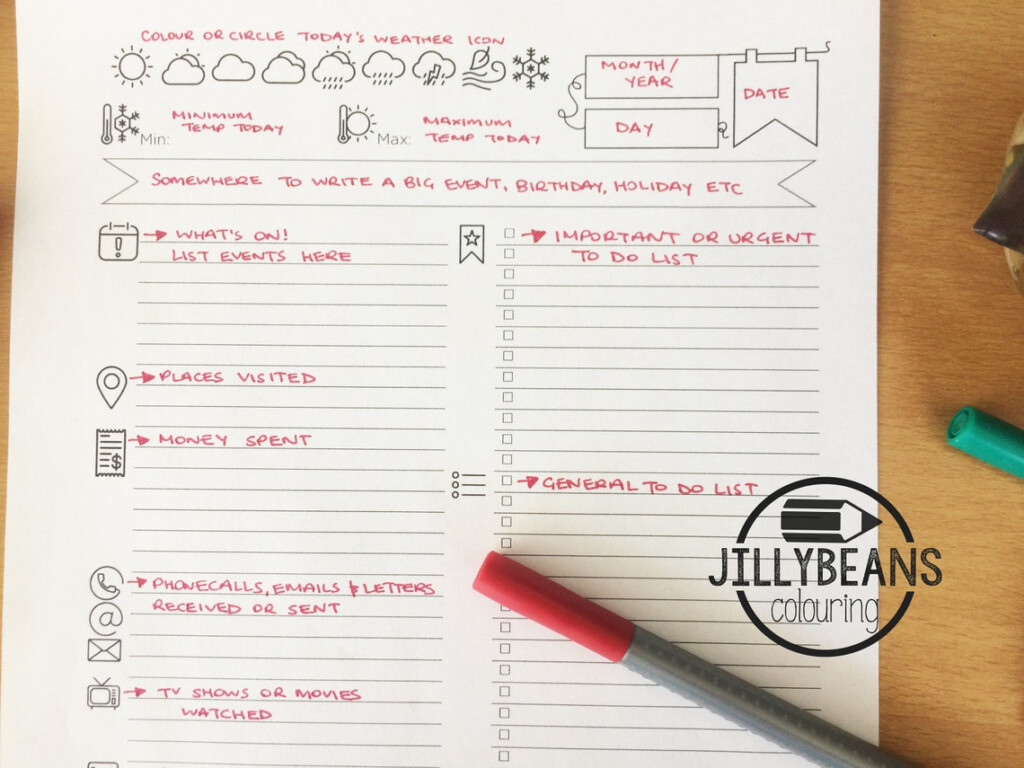 COLOUR OR CIRCLE TODAY'S WEATHER ICON
MONTH/
YEAR
DATE
Min:
MINIMUM
TEMP TODAY
Max:
MAXIMUM
TEMP TODAY
DAY
SOMEWHERE TO WRITE A BIG EVENT, BIRTHDAY, HOLIDAY ETC
WHAT'S ON!
LIST EVENTS HERE
PLACES VISITED
$
MONEY SPENT
PHONECALLS, EMAILS & LETTERS
RECEIVED OR SENT
@
TV SHOWS OR MOVIES
WATCHED
IMPORTANT OR URGENT
TO DO LIST
GENERAL TO DO LIST
JILLYBEANS
colouring